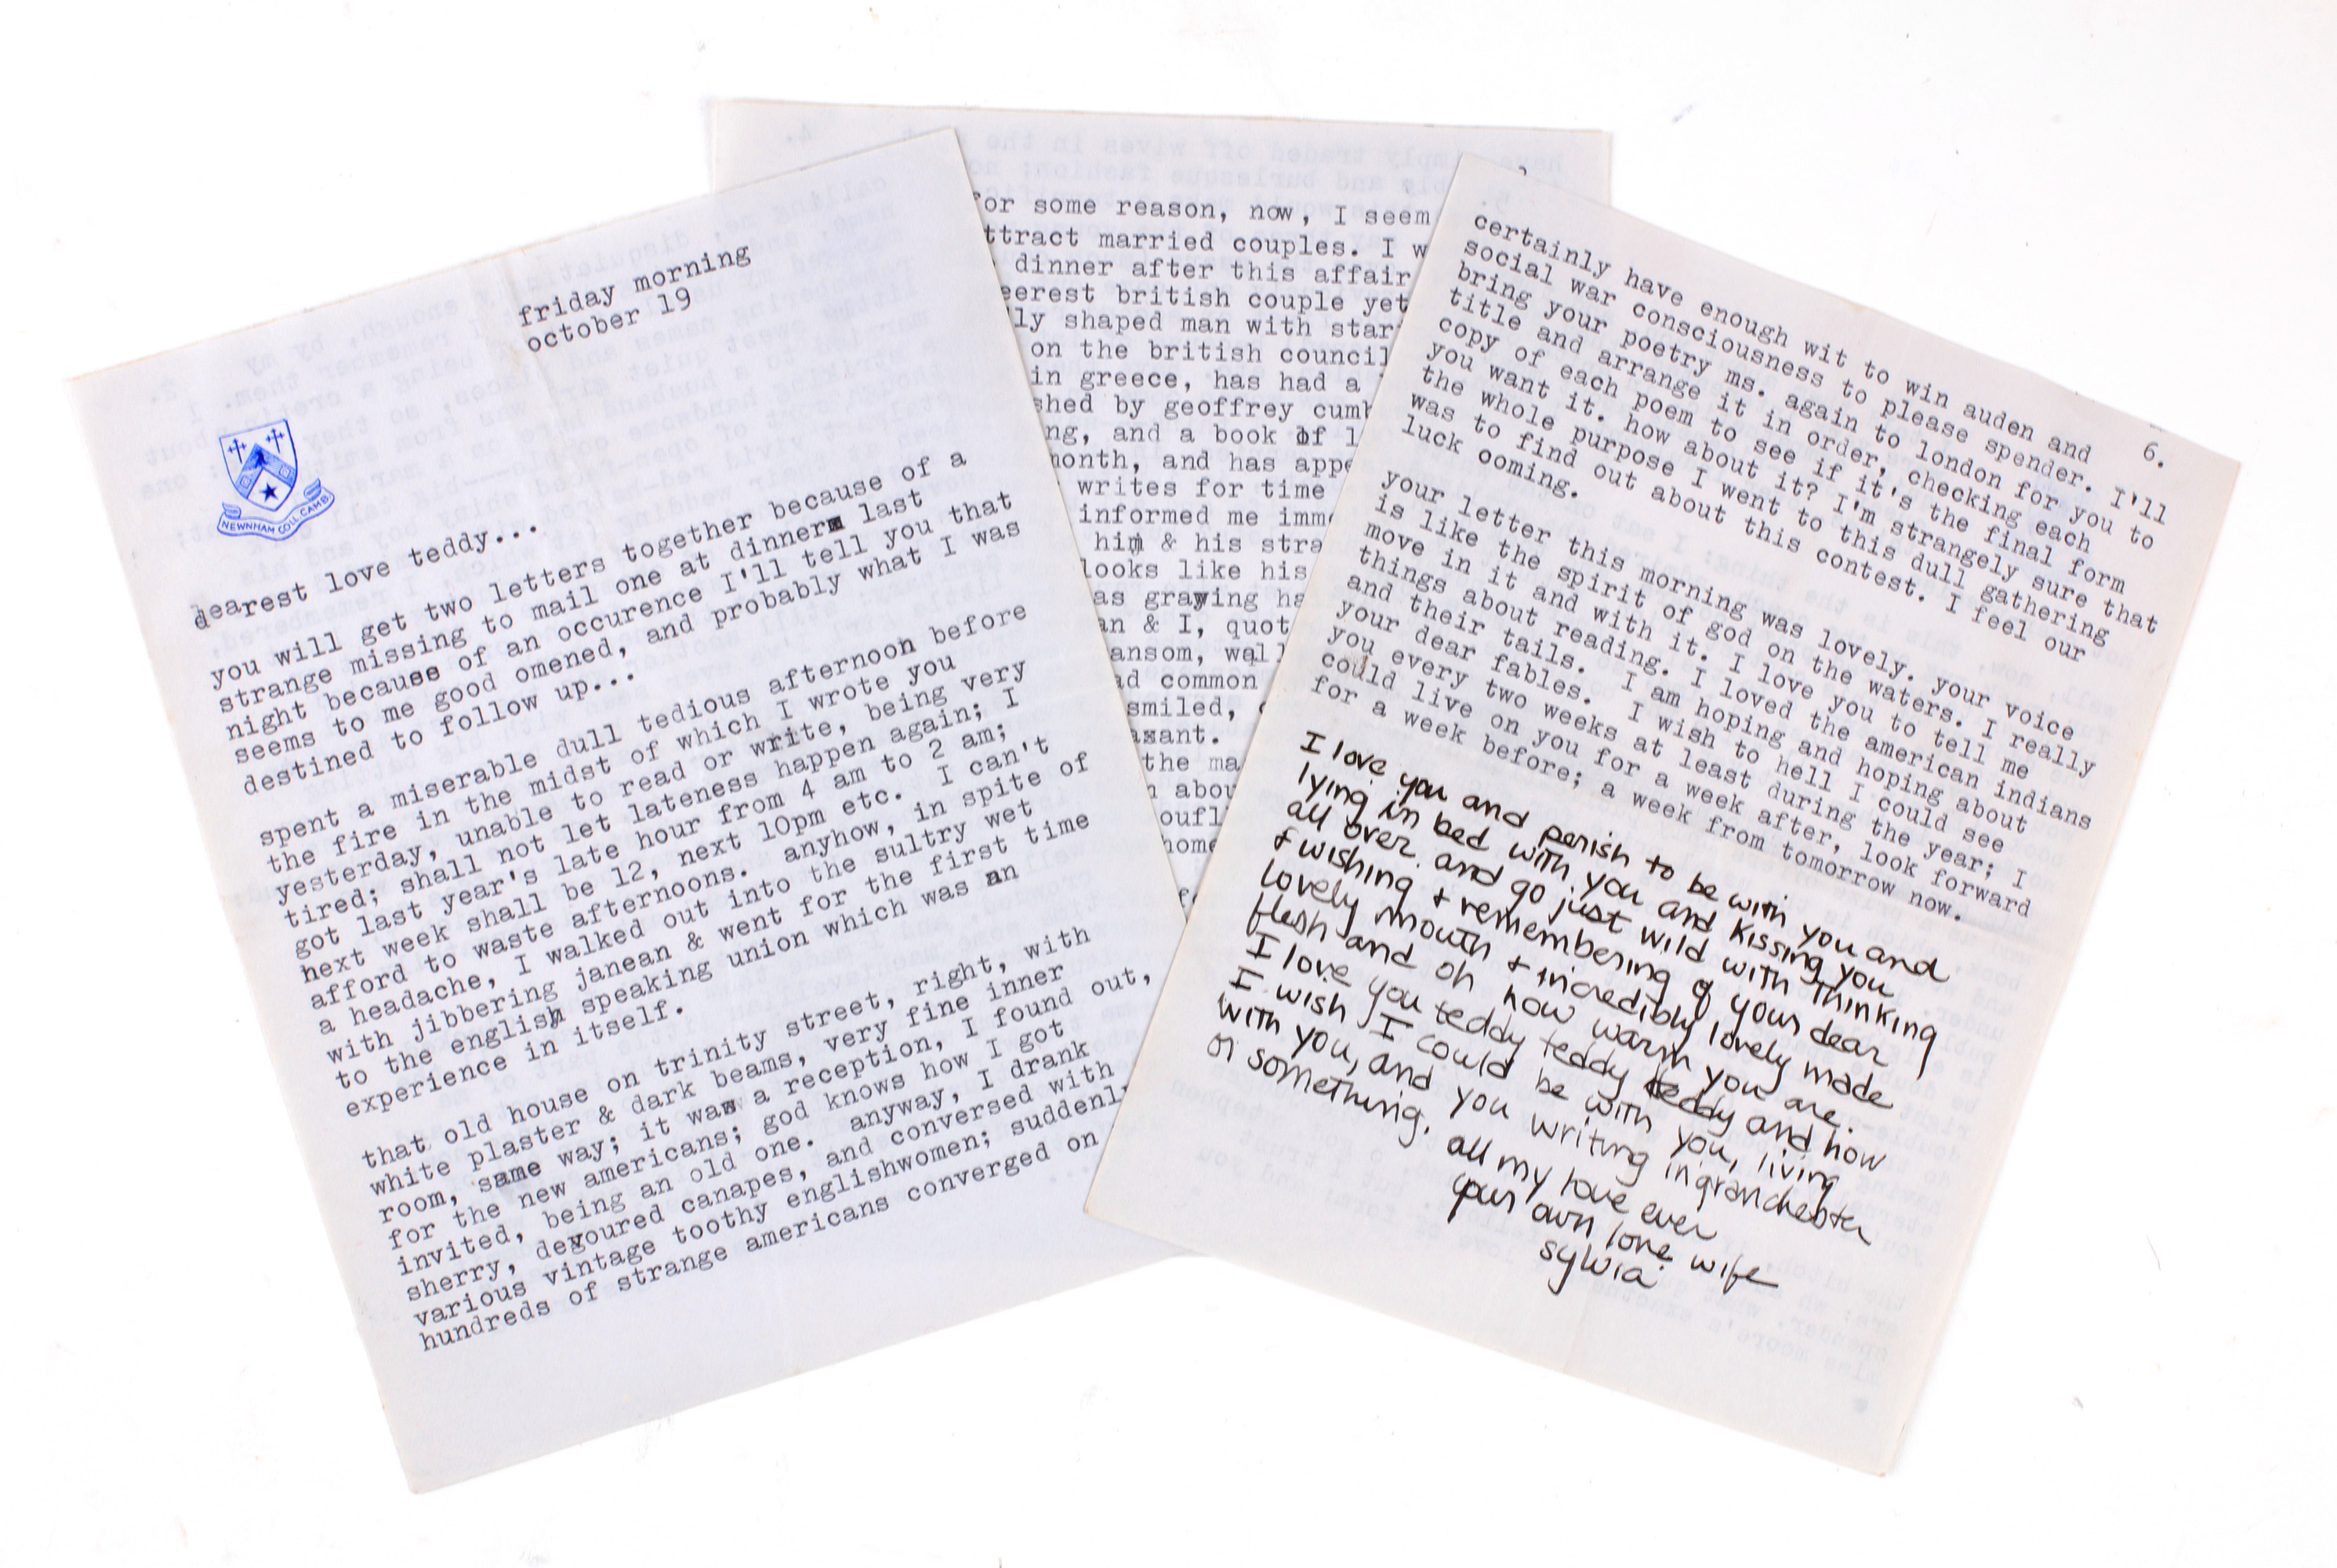 friday morning
october 19
NEWNHAM COLL CAMB
dearest love teddy...
you will get two letters together because of a
strange missing to mail one at dinner last
night because of an occurence I'll tell you that
seems to me good omened, and probably what I was
destined to follow up...
spent a miserable dull tedious afternoon before
the fire in the midst of which I wrote you
yesterday, unable to read or write, being very
tired; shall not let lateness happen again; I
got last year's late hour from 4 am to 2 am;
next week shall be 12, next 10pm etc. I can't
afford to waste afternoons. anyhow, in spite of
a headache, I walked out into the sultry wet
with jibbering janean & went for the first time
to the english speaking union which was an
experience in itself.
that old house on trinity street, right, with
white plaster & dark beams, very fine inner
room, same way; it was a reception, I found out,
for the new americans; god knows how I got
invited, being an old one. anyway, I drank
sherry, devoured canapes, and conversed with
various vintage toothy englishwomen; suddenly
hundreds of strange americans converged on
for some reason, now, I seem
ttract married couples. I w
dinner after this affair
eerest british couple yet
ly shaped man with star
on the british council
in greece, has had a
shed by geoffrey cumb
ng, and a book of l
month, and has appe
writes for time
informed me imme
him & his stra
looks like his
as graying ha
an & I, quot
ansom, wall
ad common
smiled,
asant.
the ma
n abou
oufl
home
6.
certainly have enough wit to win auden and
social war consciousness to please spender. I'll
bring your poetry ms. again to london for you to
title and arrange it in order, checking each
copy of each poem to see if it's the final form
you want it. how about it? I'm strangely sure that
the whole purpose I went to this dull gathering
was to find out about this contest. I feel our
luck coming.
your letter this morning was lovely. your voice
is like the spirit of god on the waters. I really
move in it and with it. I love you to tell me
things about reading. I loved the american indians
and their tails. I am hoping and hoping about
your dear fables. I wish to hell I could see
you every two weeks at least during the year; I
could live on you for a week after, look forward
for a week before; a week from tomorrow now.
I love you and perish to be with you and
lying in bed with you and kissing you
all over. and go just wild with thinking
& wishing & remembering of your dear
lovely mouth & incredibly lovely made
flesh and oh how warm you are.
I love you teddy teddy teddy and how
I wish I could be with you, living
with you, and you writing in granchester
or something. all my love ever
your own love wife
sylvia